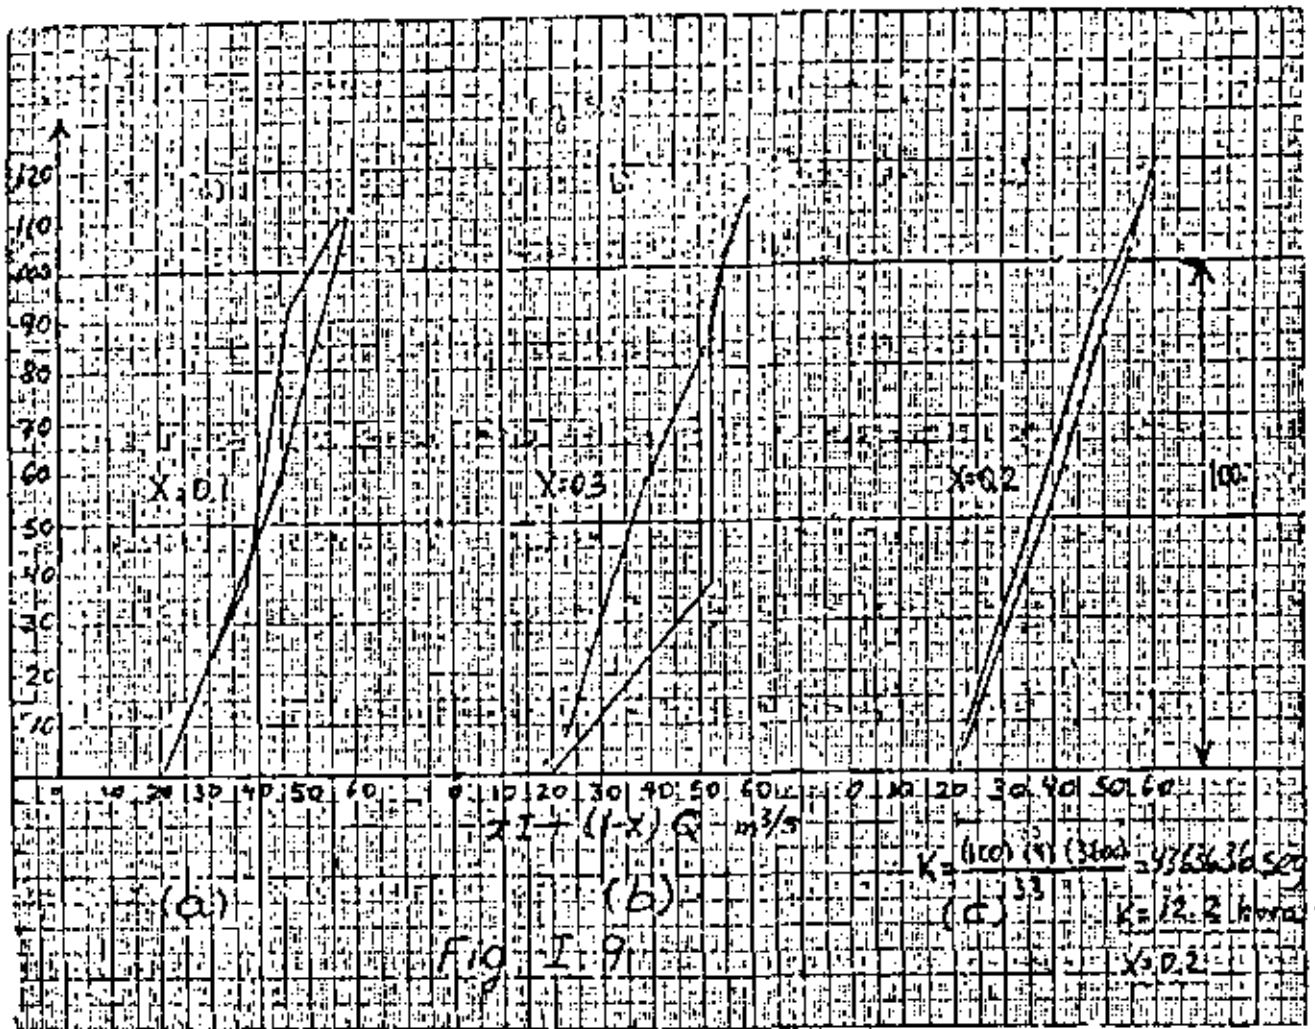 120
110
100
90
80
70
60
50
40
30
20
10
X=0.1
X=0.3
X=0.2
100
0 10 20 30 40 50 60
0 10 20 30 40 50 60
0 10 20 30 40 50 60
xI+(1-x)Q m³/s
(a)
(b)
(c)
K=(100) (4) (3600) = 43636.36 seg
33
K=12.2 hora
X=0.2
Fig I.9